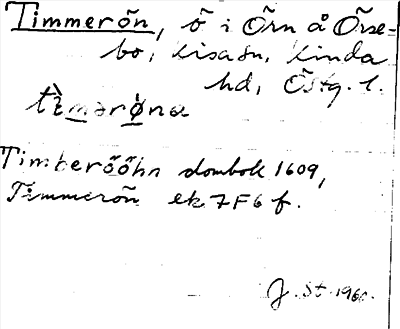 Timmerön, ö i Örn å Örse-
bo, Kisa sn, Kinda
hd, Östg. l.
tìmərøna
Timberööhn dombok 1609,
Timmerön ek 7F6 f.
J. St. 1960.